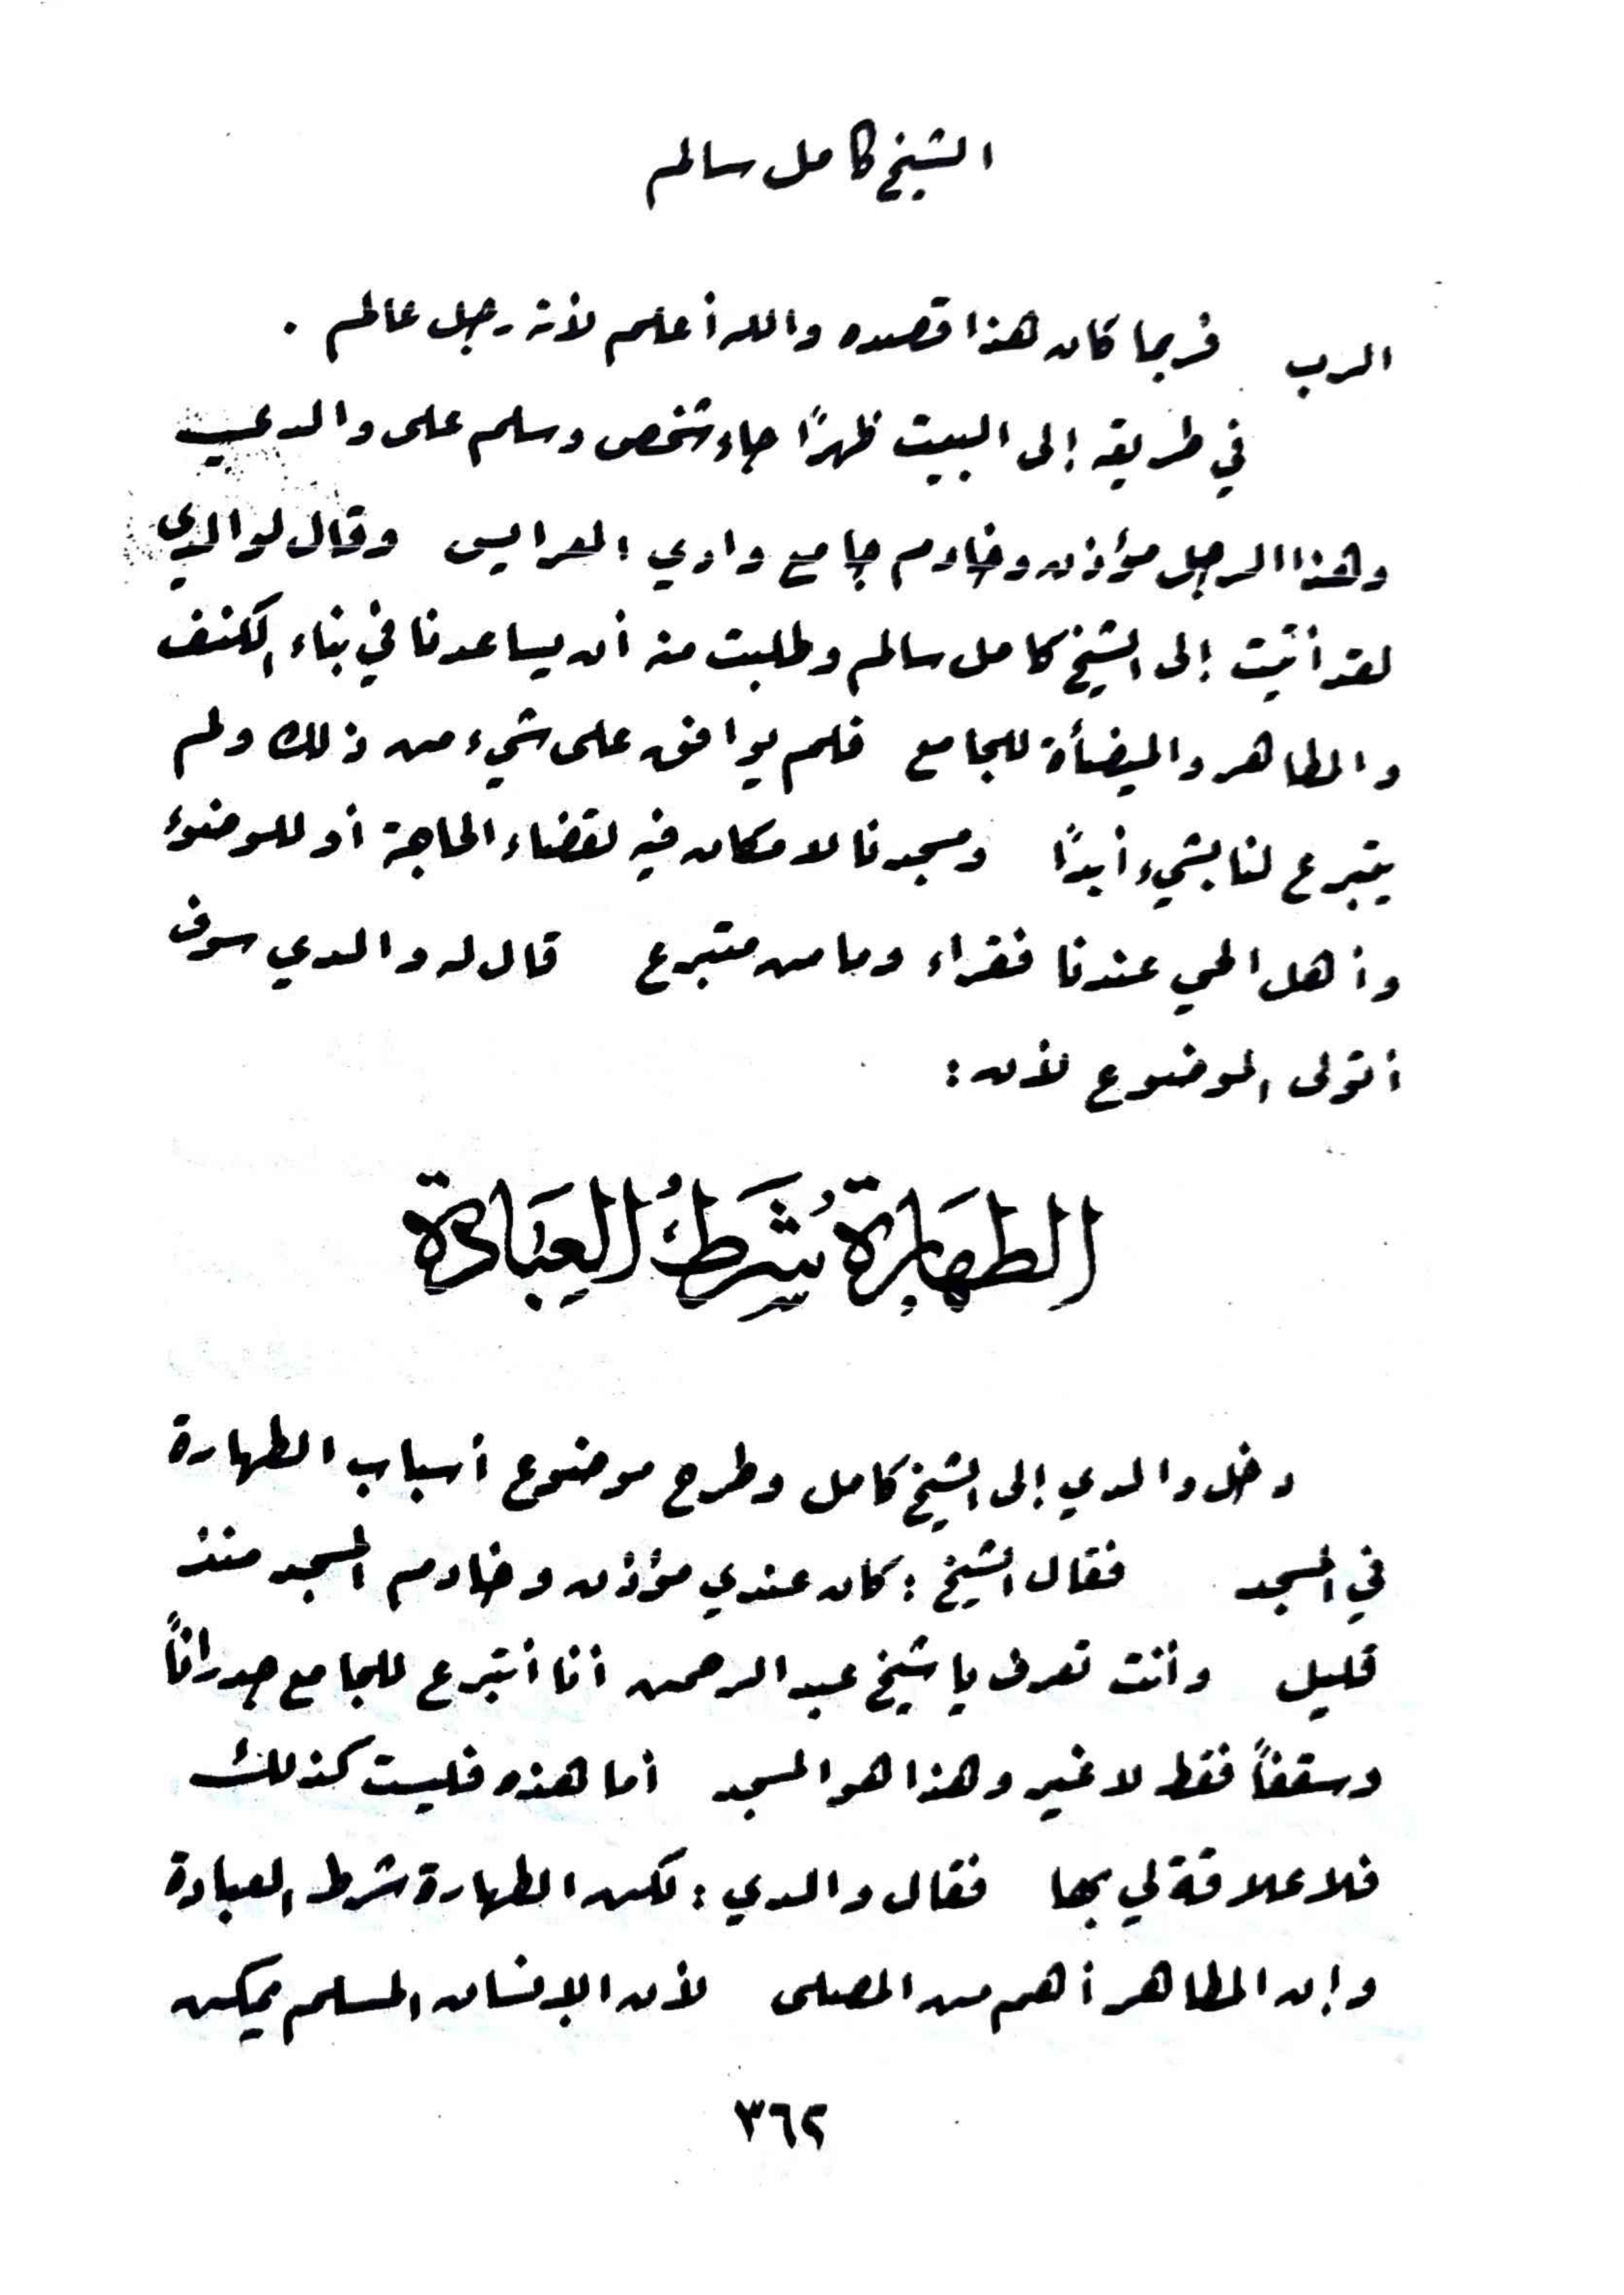 الشيخ كامل سالم
الرب فربما كان هذا قصده والله أعلم لأنه رجل عالم .
في طريقه إلى البيت ظهرًا جاء شخص وسلم على والدي
وهذا الرجل مؤذن وخادم جامع وادي العرايس وقال لوالدي
لقد أتيت إلى الشيخ كامل سالم وطلبت منه أن يساعدنا في بناء الكنف
والمطاهر والميضأة للجامع فلم يوافق على شيء من ذلك ولم
يتبرع لنا بشيء أبدًا ومسجدنا لا مكان فيه لقضاء الحاجة أو للوضوء
وأهل الحي عندنا فقراء وما من متبرع قال له والدي سوف
أتولى الموضوع لأن :
الطهَارة شَرطُ العِبَادة
دخل والدي إلى الشيخ كامل وطرح موضوع أسباب الطهارة
في المسجد فقال الشيخ : كان عندي مؤذن وخادم المسجد منذ
قليل وأنت تعرف يا شيخ عبد الرحمن أنا أتبرع للجامع جدرانًا
وسقفًا فقط لا غير وهذا هو المسجد أما هذه فليست كذلك
فلا علاقة لي بها فقال والدي : لكن الطهارة شرط العبادة
وإن المطاهر أهم من المصلى لأن الإنسان المسلم يمكن
٣٦٢